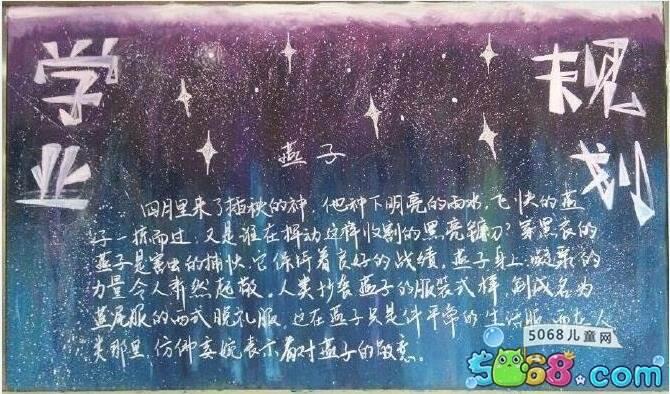 学业
规划
燕子
四月里来了插秧的神，他种下明亮的雨水，飞快的燕
子一掠而过，又是谁在挥动这样收割的黑亮镰刀？穿黑衣的
燕子是害虫的捕快，它保持着良好的战绩，燕子身上凝聚的
力量令人肃然起敬。人类抄袭燕子的服装式样，制成名为
燕尾服的西式晚礼服，这在燕子只是件平常的生活服，而在人
类那里，仿佛委婉表示着对燕子的敬意。
5068儿童网
5068.com